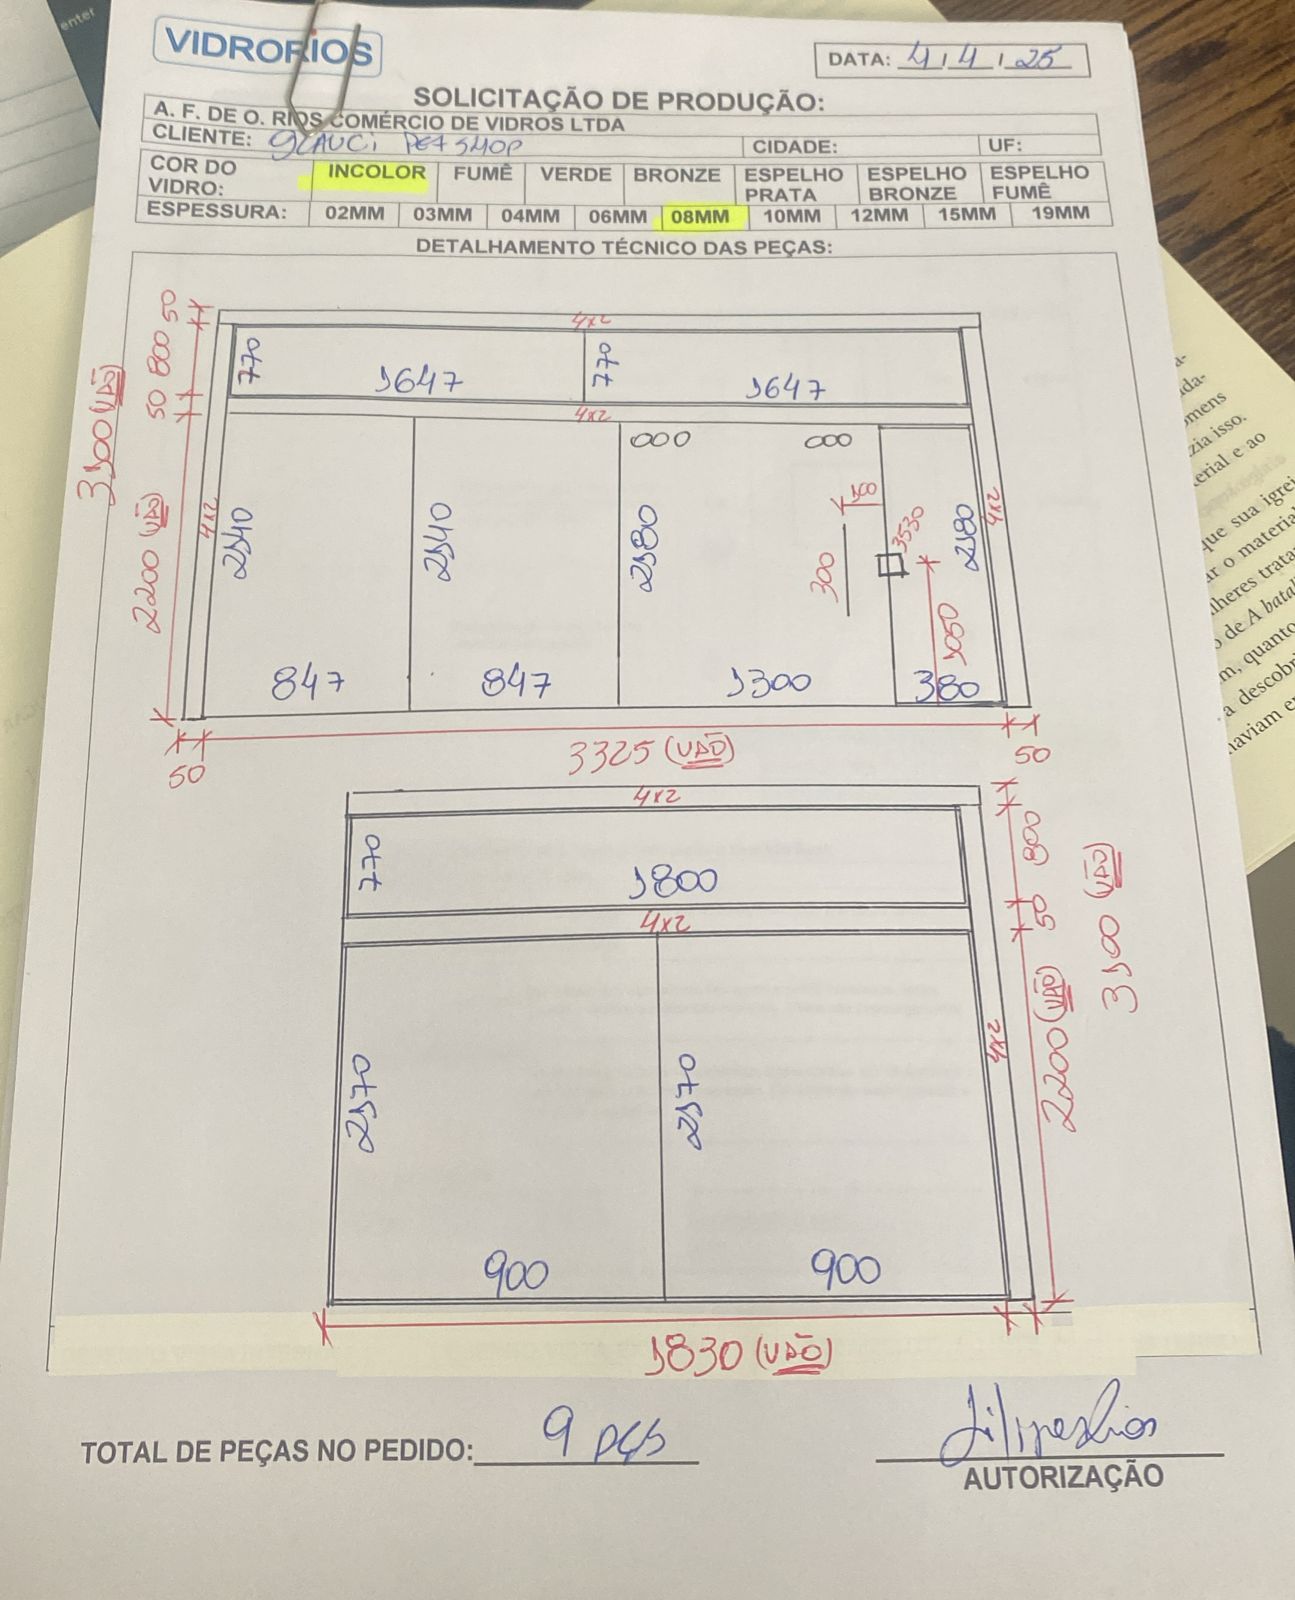 enter
VIDRORIOS
DATA: 4 / 4 / 25
SOLICITAÇÃO DE PRODUÇÃO:
A. F. DE O. RIOS COMÉRCIO DE VIDROS LTDA
CLIENTE: GLAUCI PET SHOP CIDADE: UF:
COR DO VIDRO: INCOLOR FUMÊ VERDE BRONZE ESPELHO PRATA ESPELHO BRONZE ESPELHO FUMÊ
ESPESSURA: 02MM 03MM 04MM 06MM 08MM 10MM 12MM 15MM 19MM
DETALHAMENTO TÉCNICO DAS PEÇAS:
50
4x2
800
770
1647
770
1647
3100 (VÃO)
50
4x2
2200 (VÃO)
4x2
2140
2140
2180
100
300
1530
2180
4x2
1050
847
847
1300
380
50
3325 (VÃO)
50
4x2
770
1800
800
4x2
50
3100 (VÃO)
2170
2170
4x2
2200 (VÃO)
900
900
1830 (VÃO)
TOTAL DE PEÇAS NO PEDIDO: 9 PÇS
AUTORIZAÇÃO
omens
zia isso.
erial e ao
que sua igrej
ar o material
lheres trata
o de A batal
m, quanto
a descobri
haviam e